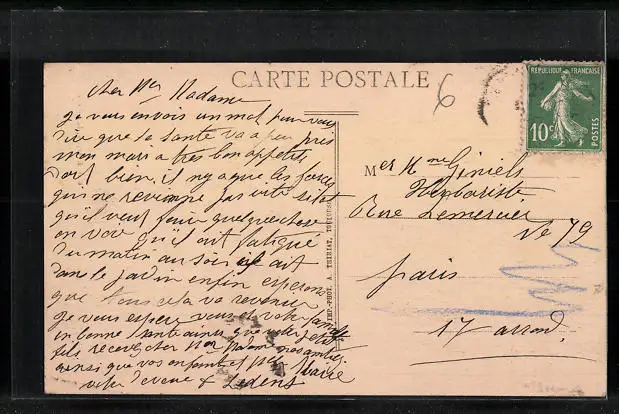 CARTE POSTALE
6
REPUBLIQUE FRANÇAISE
10c
POSTES
cher Mr Madame
je vous envois un mot pour vous
dire que la santé va a peu près
mon mari a très bon appetit
dort bien, il n'y a que les forces
qui ne revienne pas vite sitot
qu'il veut faire quelque chose
on voie qu'il ait fatigué
du matin au soir il ait
dans le jardin enfin esperons
que tous cela va revenir
je vous espere vous et votre famille
en bonne santé ainsi que votre petit
fils recevez cher Mr Madame nos amitiés
ainsi que vos enfants et
Ledens
IMP.-PHOT. A. THIRIAT, TOULOUSE
Mer Mme Giniels
Herboriste
Rue Lemercier
No 79
Paris
17 arrond.